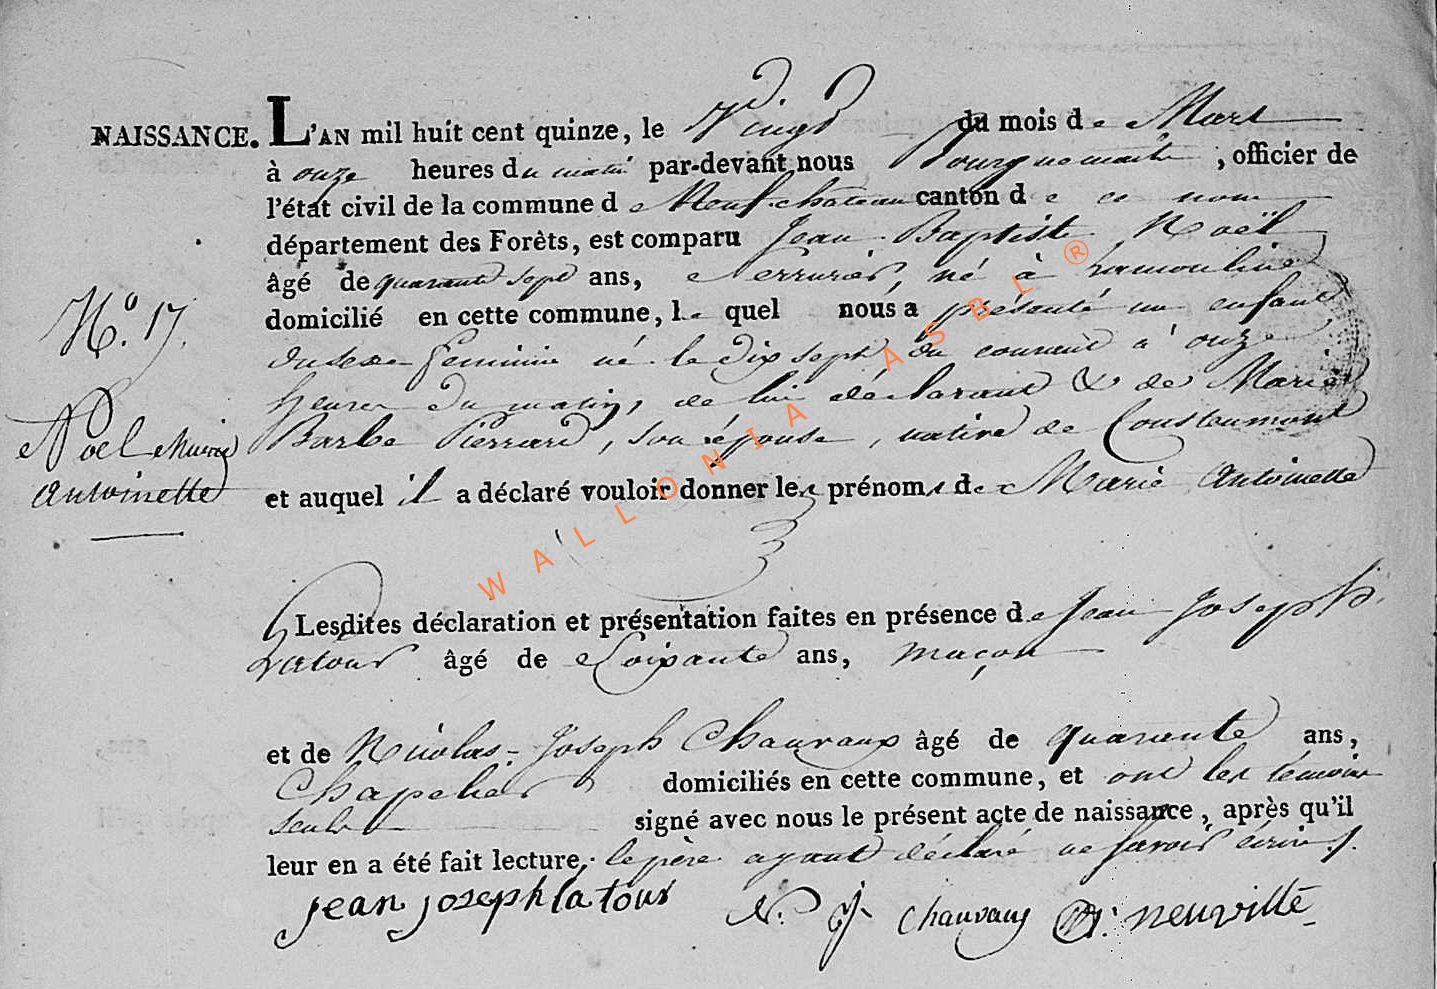 NAISSANCE. L'AN mil huit cent quinze, le vingt du mois de Mars
à onze heures du matin par-devant nous Bourgmestre, officier de
l'état civil de la commune de Neufchateau canton de ce nom
département des Forèts, est comparu Jean Baptiste Noël
âgé de quarante sept ans, Serrurier, né à Lamouline
domicilié en cette commune, le quel nous a présenté un enfant
du sexe feminin né le dix sept du courant à onze
heures du matin, de lui déclarant & de Marie
Barbe Pierrard, son épouse, native de Coustumont
et auquel il a déclaré vouloir donner les prénoms de Marie Antoinette
N.° 17.
Noël Marie
Antoinette
Lesdites déclaration et présentation faites en présence de Jean Joseph
Latour âgé de Soixante ans, maçon
et de Nicolas-Joseph Chauvaux âgé de quarante ans,
Chapelier domiciliés en cette commune, et ont les témoins
seuls signé avec nous le présent acte de naissance, après qu'il
leur en a été fait lecture, le père ayant déclaré ne savoir écrire.
jean joseph la tour N. J. chauvaux neuville
WALLONIA ASBL ®